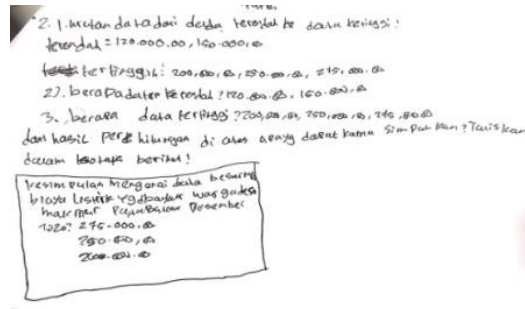 2. 1. urutan data dari data terendah ke data tertinggi:
terendah = 120.000.00, 160.000,00
tertinggih: 200,000,00, 250.000.00, 275.000.00
2). berapa data terendah? 120.000.00. 160.000,00
3. berapa data tertinggi? 200,000,00, 250,000,00, 275,000
dari hasil perhitungan di atas apa yg dapat kamu simpulkan? Tuliskan
dalam kotak berikut!
kesimpulan mengenai data besarnya
biaya listrik yg dibayar warga desa
makmur pada bulan Desember
2020? 275.000.00
250.000,00
200.000.00